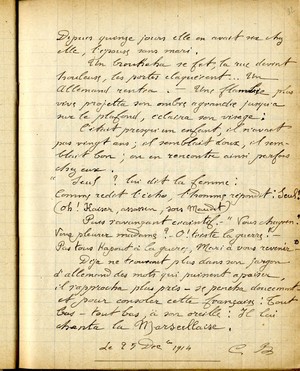 Depuis quinze jours elle en avait un chez
elle, l'épouse sans mari.
Un brouhaha se fit, la rue devint
houleuse, les portes claquèrent... Un
Allemand rentra. — Une flambée plus
vive projetta son ombre agrandie jusque
sur le plafond, éclaira son visage:
C'était presqu'un enfant, il n'avait
pas vingt ans; il semblait doux, il sem-
blait bon; on en rencontre ainsi parfois
chez eux.
"Seul? lui dit la femme:
Comme redit l'écho, l'homme répondit: Seul!
(Oh! Kaiser, assassin, sois Maudit)
Puis s'avançant "Vous chagrin?
Vous pleurer madame? O! triste la guerre! -
Pas tous à la guerre, Mari à vous revenir -"
Déjà ne trouvant plus dans son jargon
d'allemand des mots qui puissent apaiser,
il s'approche plus près - se pencha doucement
et pour consoler cette française: Tout
bas - tout bas, à son oreille: Il lui
chanta la Marseillaise.
Le 25 Dec 1914